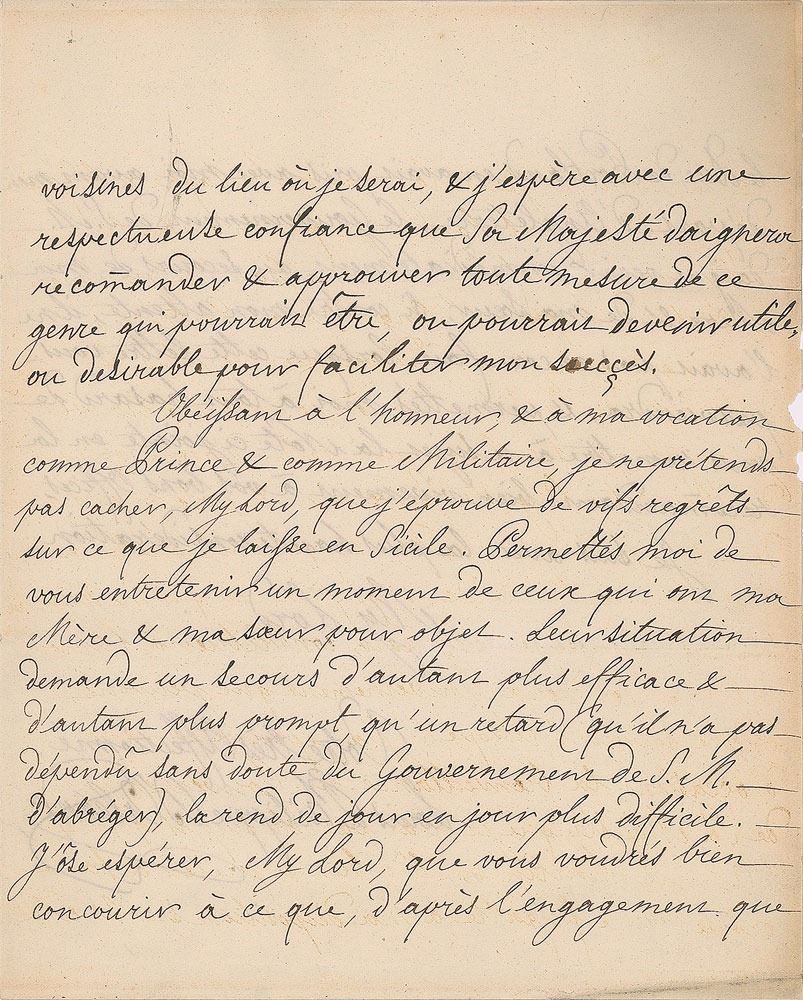 voisines du lieu où je serai, & j'espère avec une
respectueuse confiance que Sa Majesté daignera
recom̄ander & approuver toute mesure de ce
genre qui pourrait être, ou pourrait devenir utile,
ou desirable pour faciliter mon succès.
Obéissant à l'honneur, & à ma vocation
comme Prince & comme Militaire, je ne prétends
pas cacher, My Lord, que j'éprouve de vifs regrêts
sur ce que je laisse en Sicile. Permettés moi de
vous entretenir un moment de ceux qui ont ma
Mère & ma sœur pour objet. Leur situation
demande un secours d'autant plus efficace &
d'autant plus prompt, qu'un retard (qu'il n'a pas
dépendû sans doute du Gouvernement de S. M.
d'abréger), la rend de jour en jour plus difficile.
J'ôse espérer, My Lord, que vous voudrés bien
concourir à ce que, d'après l'engagement que